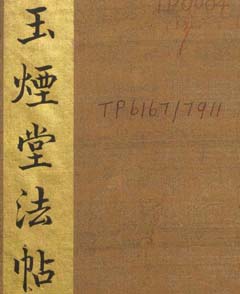 玉煙堂法帖
TP6167/7911